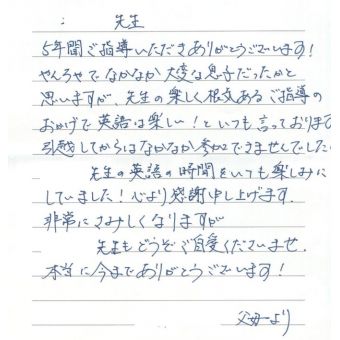 先生
5年間ご指導いただきありがとうございます!
やんちゃでなかなか大変な息子だったかと
思いますが、先生の楽しく根気あるご指導の
おかげで英語は楽しい!といつも言っております
引越してからはなかなか参加できませんでしたが
先生の英語の時間をいつも楽しみに
していました!心より感謝申し上げます.
非常にさみしくなりますが
先生もどうぞご自愛くださいませ.
本当に今までありがとうございます!
父母より